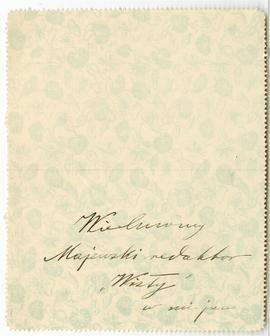 Wielmożny
Majewski redaktor
"Wisły"
w miejscu